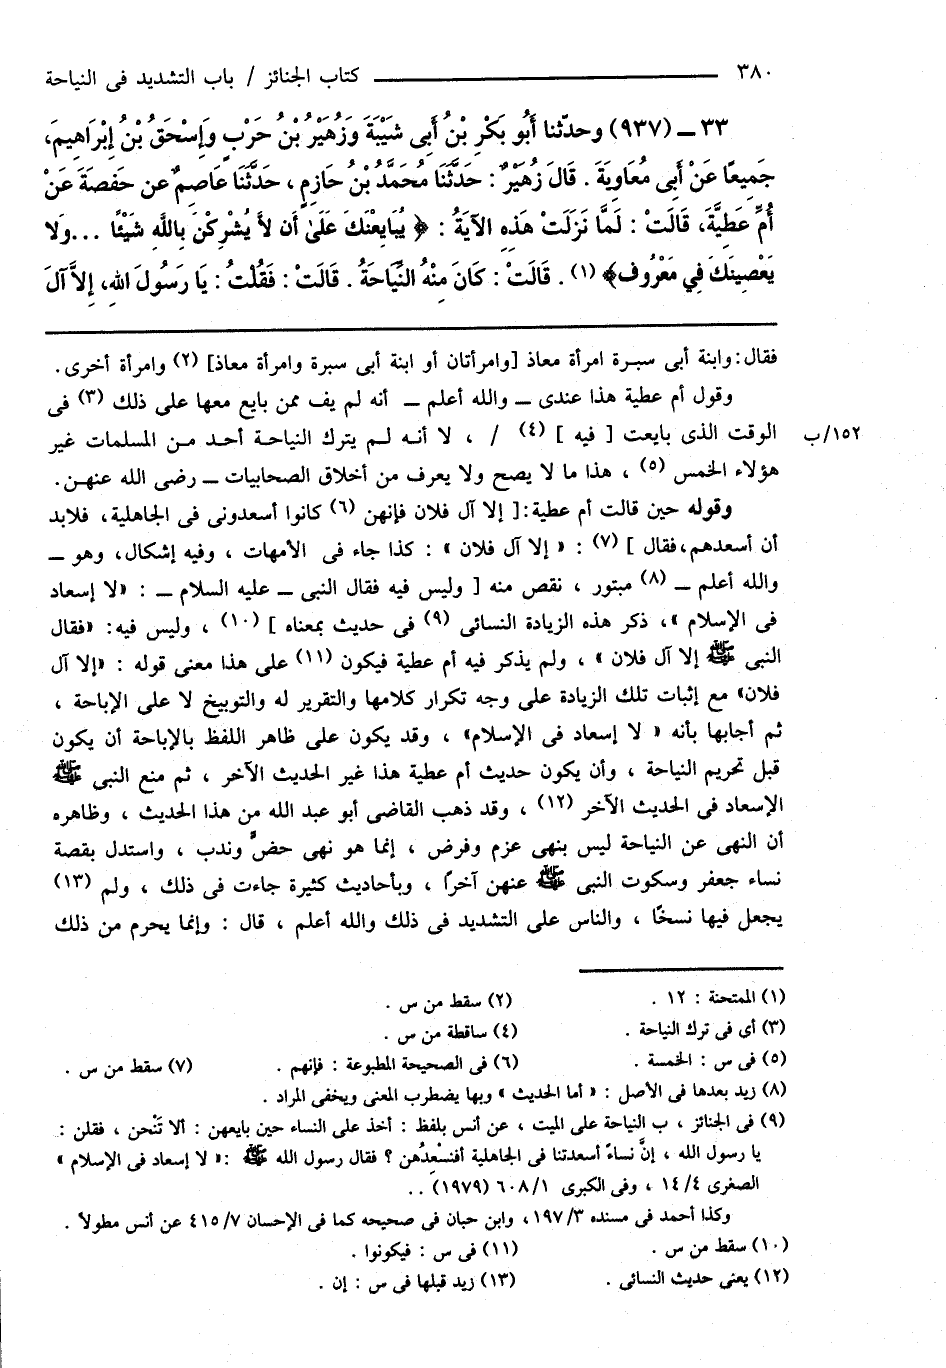 ٣٨٠ كتاب الجنائز / باب التشديد فى النياحة
٣٣ ــ (٩٣٧) وحدّثنا أَبُو بَكْرِ بْنُ أَبِى شَيْبَةَ وَزُهَيْرُ بْنُ حَرْبٍ وَإِسْحَقُ بْنُ إِبْرَاهِيمَ،
جَمِيعًا عَنْ أَبِى مُعَاوِيَةَ . قَالَ زُهَيْرٌ : حَدَّثَنَا مُحَمَّدُ بْنُ حَازِمٍ ، حَدَّثَنَا عَاصِمٌ عن حَفصَةَ عَنْ
أُمِّ عَطِيَّةَ، قَالَتْ : لَمَّا نَزَلَتْ هَذِهِ الآيَةُ : ﴿ يُبَايِعْنَكَ عَلَىٰ أَن لاَّ يُشْرِكْنَ بِاللَّهِ شَيْئًا ...وَلا
يَعْصِينَكَ فِي مَعْرُوف﴾ (١) . قَالَتْ : كَانَ مِنْهُ النِّيَاحَةُ . قَالَتْ : فَقُلْتُ : يَا رَسُولَ الله، إِلاَّ آلَ
فقال: وابنة أبى سبرة امرأة معاذ [وامرأتان أو ابنة أبى سبرة وامرأة معاذ] (٢) وامرأة أخرى.
وقول أم عطية هذا عندى ــ والله أعلم ــ أنه لم يف ممن بايع معها على ذلك (٣) فى
الوقت الذى بايعت [ فيه ] (٤) / ، لا أنه لم يترك النياحة أحد من المسلمات غير
١٥٢/ب
هؤلاء الخمس (٥) ، هذا ما لا يصح ولا يعرف من أخلاق الصحابيات ــ رضى الله عنهن.
وقوله حين قالت أم عطية:[ إلا آل فلان فإنهن (٦) كانوا أسعدونى فى الجاهلية، فلابد
أن أسعدهم،فقال ] (٧) : « إلا آل فلان » : كذا جاء فى الأمهات ، وفيه إشكال، وهو ــ
والله أعلم ــ (٨) مبتور ، نقص منه [ وليس فيه فقال النبى ــ عليه السلام ــ : «لا إسعاد
فى الإسلام »، ذكر هذه الزيادة النسائى (٩) فى حديث بمعناه ] (١٠) ، وليس فيه: «فقال
النبى ﷺ إلا آل فلان » ، ولم يذكر فيه أم عطية فيكون (١١) على هذا معنى قوله : «إلا آل
فلان» مع إثبات تلك الزيادة على وجه تكرار كلامها والتقرير له والتوبيخ لا على الإباحة ،
ثم أجابها بأنه « لا إسعاد فى الإسلام» ، وقد يكون على ظاهر اللفظ بالإباحة أن يكون
قبل تحريم النياحة ، وأن يكون حديث أم عطية هذا غير الحديث الآخر ، ثم منع النبى ﷺ
الإسعاد فى الحديث الآخر (١٢) ، وقد ذهب القاضى أبو عبد الله من هذا الحديث ، وظاهره
أن النهى عن النياحة ليس بنهى عزم وفرض ، إنما هو نهى حضٍّ وندب ، واستدل بقصة
نساء جعفر وسكوت النبى ﷺ عنهن آخرًا ، وبأحاديث كثيرة جاءت فى ذلك ، ولم (١٣)
يجعل فيها نسخًا ، والناس على التشديد فى ذلك والله أعلم ، قال : وإنما يحرم من ذلك
(١) الممتحنة : ١٢ . (٢) سقط من س .
(٣) أى فى ترك النياحة . (٤) ساقطة من س .
(٥) فى س : الخمسة . (٦) فى الصحيحة المطبوعة : فإنهم . (٧) سقط من س .
(٨) زيد بعدها فى الأصل : « أما الحديث » وبها يضطرب المعنى ويخفى المراد .
(٩) فى الجنائز ، ب النياحة على الميت ، عن أنس بلفظ : أخذ على النساء حين بايعهن : ألا تَنْحن ، فقلن :
يا رسول الله ، إنَّ نساءً أسعدتنا فى الجاهلية أفنسْعِدُهن ؟ فقال رسول الله ﷺ :« لا إسعاد فى الإسلام »
الصغرى ١٤/٤ ، وفى الكبرى ٦٠٨/١ (١٩٧٩) ..
وكذا أحمد فى مسنده ١٩٧/٣، وابن حبان فى صحيحه كما فى الإحسان ٤١٥/٧ عن أنس مطولاً .
(١٠) سقط من س . (١١) فى س : فيكونوا .
(١٢) يعنى حديث النسائى . (١٣) زيد قبلها فى س : إن .